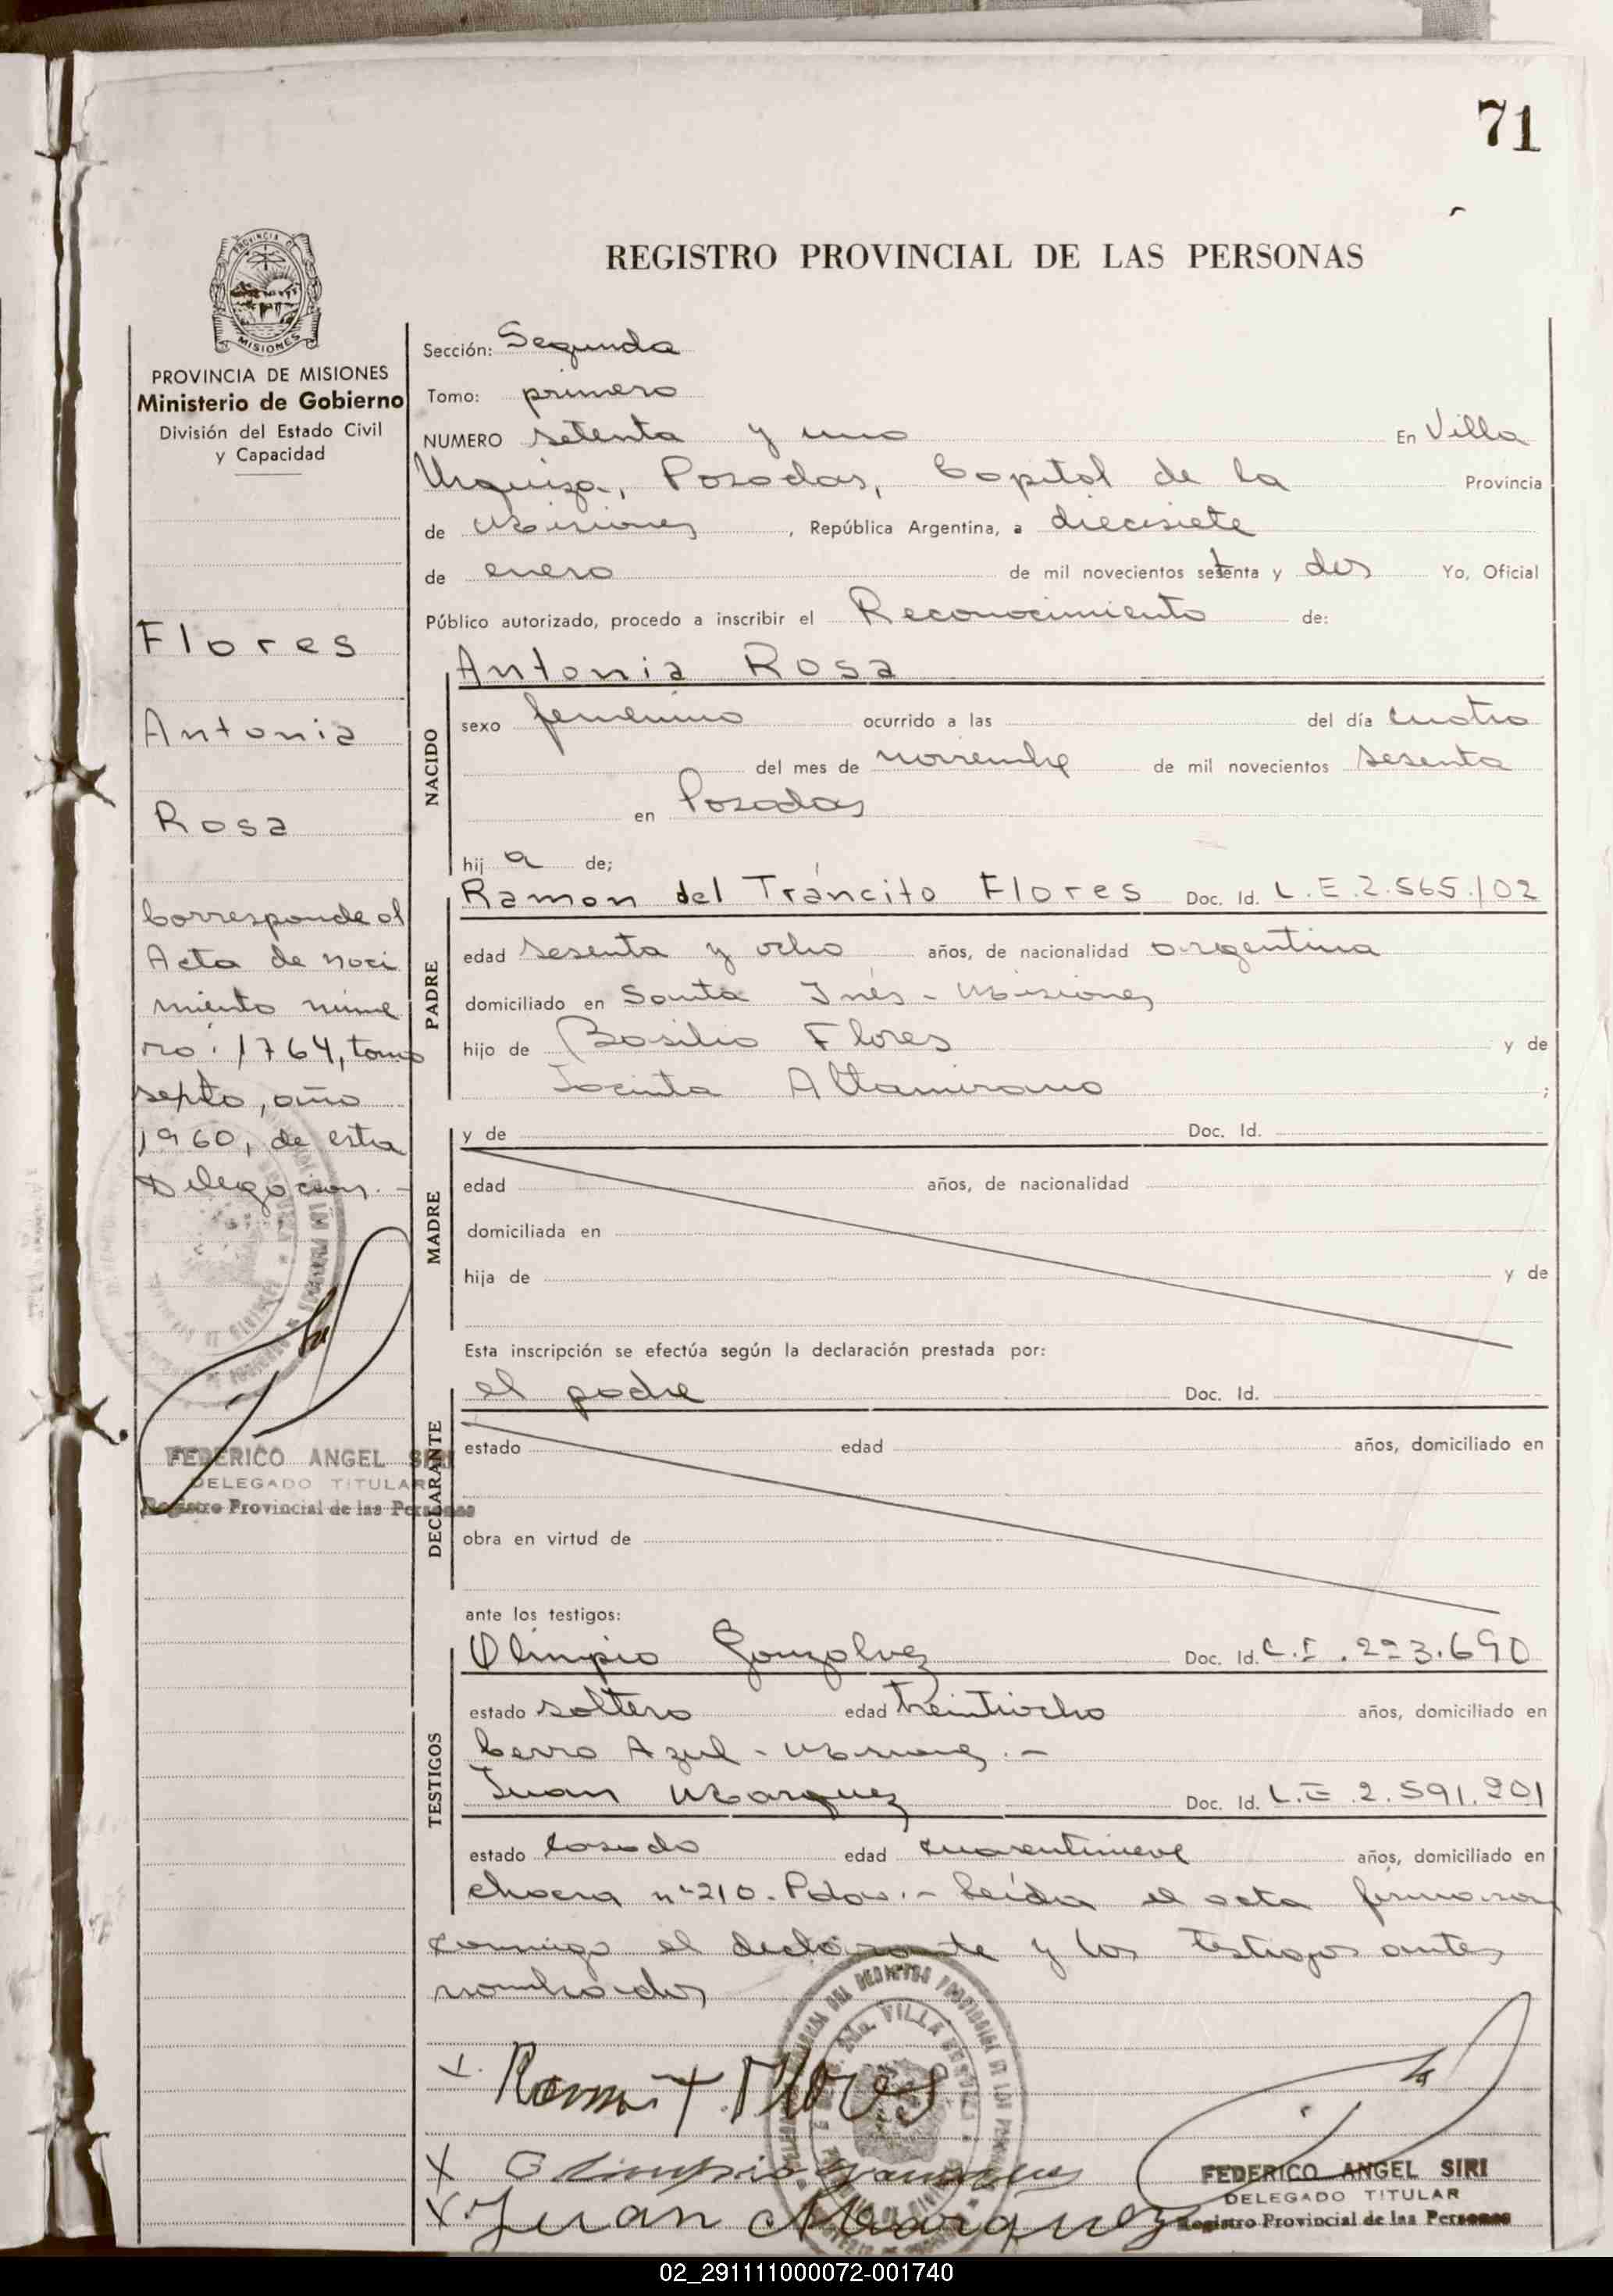 71
REGISTRO PROVINCIAL DE LAS PERSONAS
PROVINCIA DE
MISIONES
PROVINCIA DE MISIONES
Ministerio de Gobierno
División del Estado Civil
y Capacidad
Flores
Antonia
Rosa
Corresponde al
Acta de naci
miento núme
ro: 1764, tomo
septo, año
1960, de esta
Delegacion.-
FEDERICO ANGEL SIRI
DELEGADO TITULAR
Registro Provincial de las Personas
Sección: Segunda
Tomo: primero
NUMERO setenta y uno En Villa
Urquiza, Posadas, Capital de la Provincia
de Misiones, República Argentina, a diecisiete
de enero de mil novecientos setenta y dos Yo, Oficial
Público autorizado, procedo a inscribir el Reconocimiento de:
NACIDO
Antonia Rosa
sexo femenino ocurrido a las del día cuatro
del mes de noviembre de mil novecientos sesenta
en Posadas
hij a de;
PADRE
Ramon del Tráncito Flores Doc. Id. L.E.2.565.102
edad sesenta y ocho años, de nacionalidad argentina
domiciliado en Santa Inés - Misiones
hijo de Basilio Flores y de
Jacinta Altamirano ;
MADRE
y de Doc. Id.
edad años, de nacionalidad
domiciliada en
hija de y de
Esta inscripción se efectúa según la declaración prestada por:
DECLARANTE
el padre Doc. Id.
estado edad años, domiciliado en
obra en virtud de
ante los testigos:
TESTIGOS
Olimpio Gonzalvez Doc. Id. C.I. 223.690
estado soltero edad treintiocho años, domiciliado en
Cerro Azul - Misiones.-
Juan Marquez Doc. Id. L.E 2.591.201
estado casado edad cuarentinueve años, domiciliado en
chacra nº210. Pdas.- Leída el acta firmaron
conmigo el declarante y los testigos antes
nombrados
x. Ramon T Flores
x Olimpio
x. Juan Marquez
FEDERICO ANGEL SIRI
DELEGADO TITULAR
Registro Provincial de las Personas
02_291111000072-001740